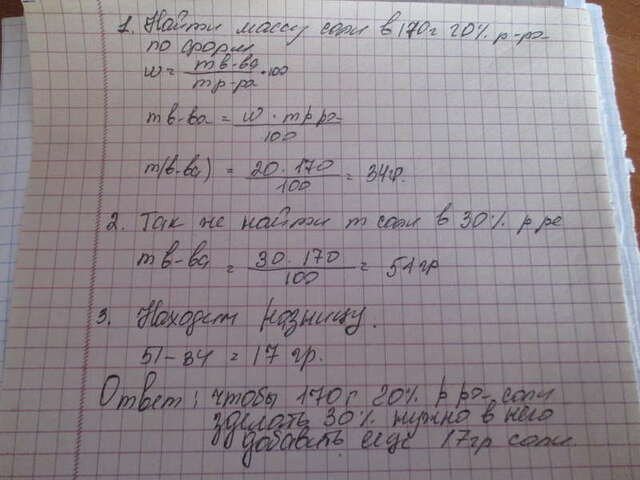 1. Найти массу соли в 170г 20% р-ра
по форм
w = m в-ва / m р-ра · 100
m в-ва = w · m р ра / 100
m(в-ва) = 20 · 170 / 100 = 34гр.
2. Так же найти m соли в 30% р ре
m в-ва = 30 · 170 / 100 = 51 гр
3. Находим разницу.
51 - 34 = 17 гр.
Ответ: чтобы 170г 20% р ра соли
зделать 30% нужно в него
добавить еще 17гр соли.